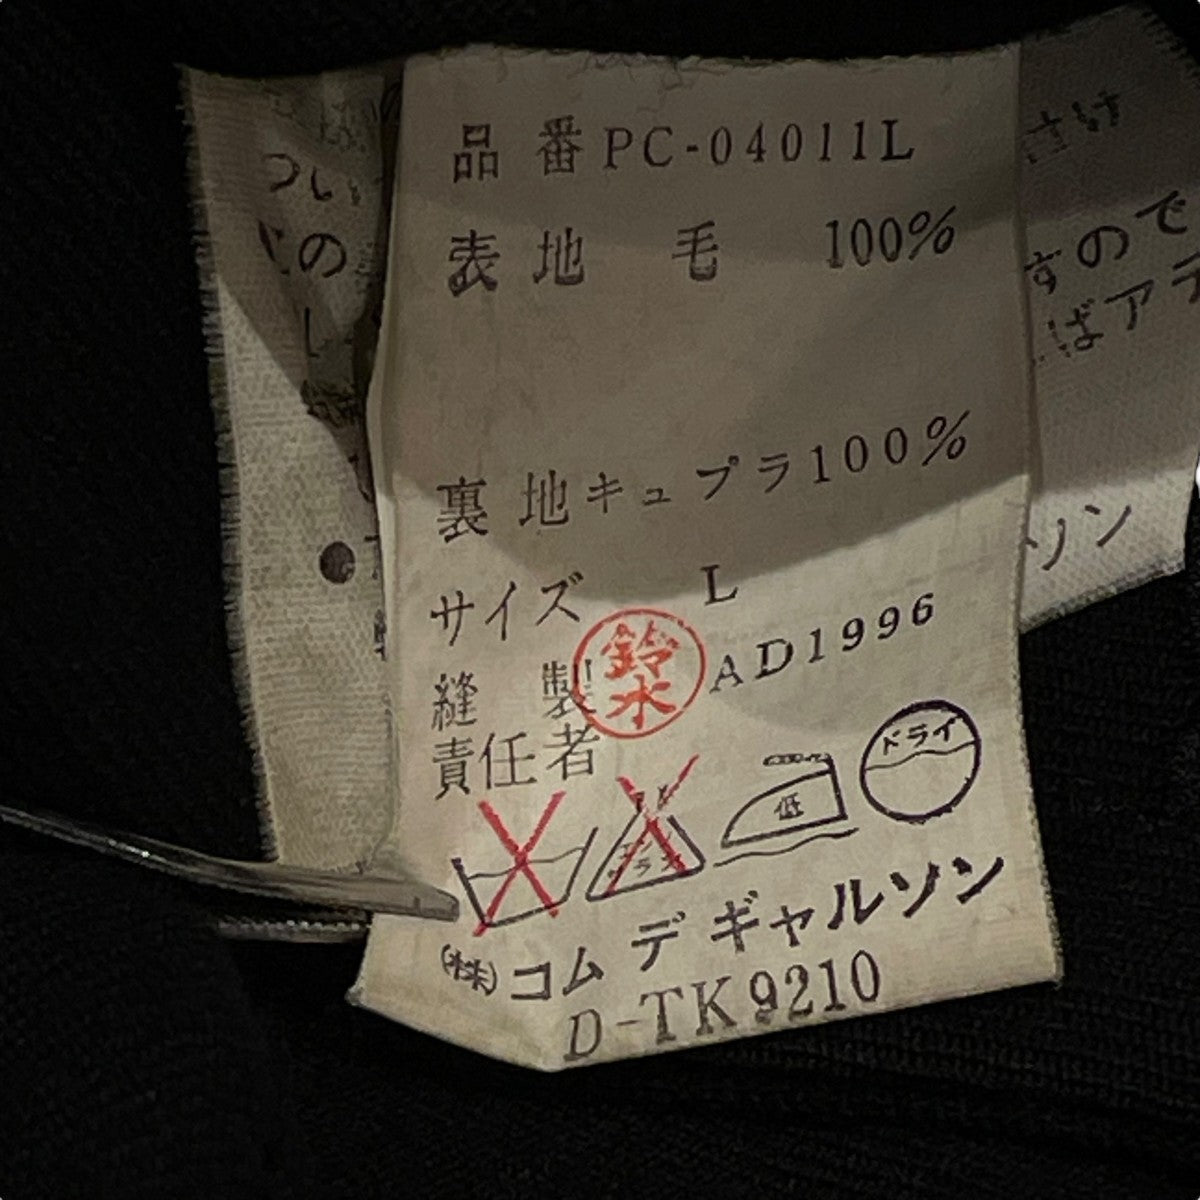 品番PC-04011L
表地 毛 100%
裏地キュプラ100%
サイズ L
縫製 鈴木 AD1996
責任者
低 ドライ
(株)コム デ ギャルソン
D-TK9210
つい
の
さけ
すので
ばアテ
ソン